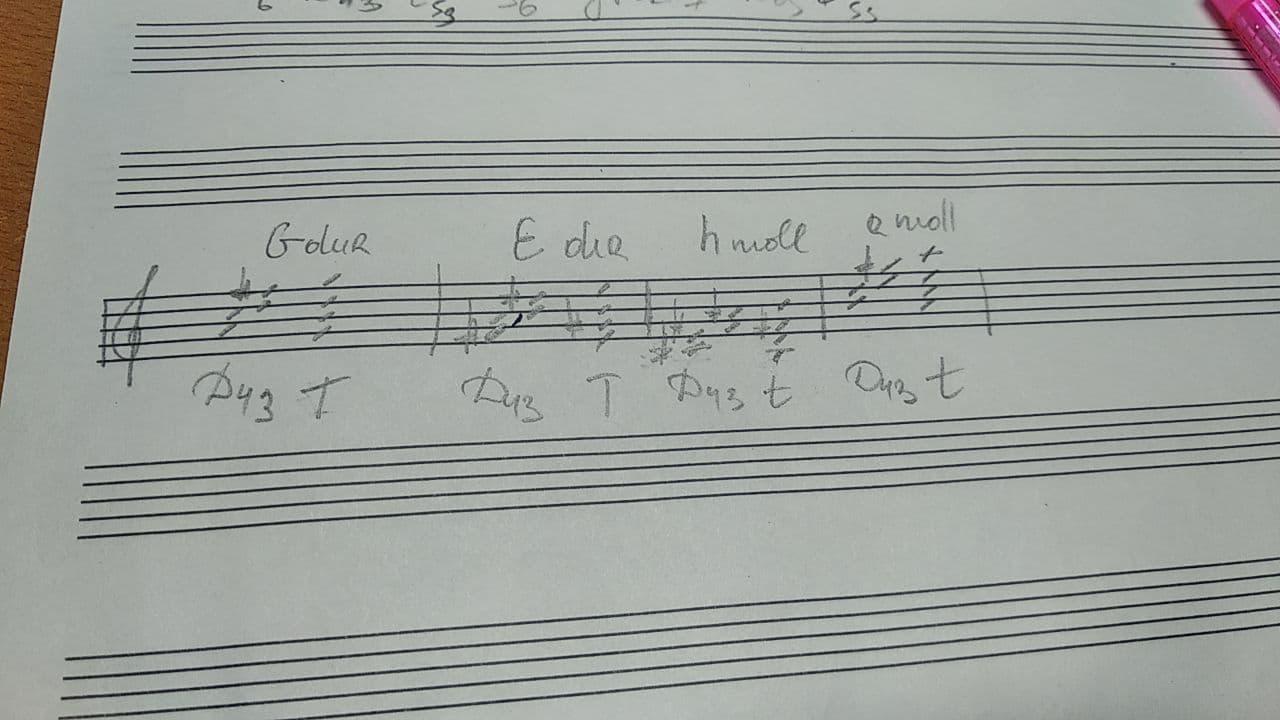 G dur E dur h moll a moll
D43 T D43 T D43 t D43 t